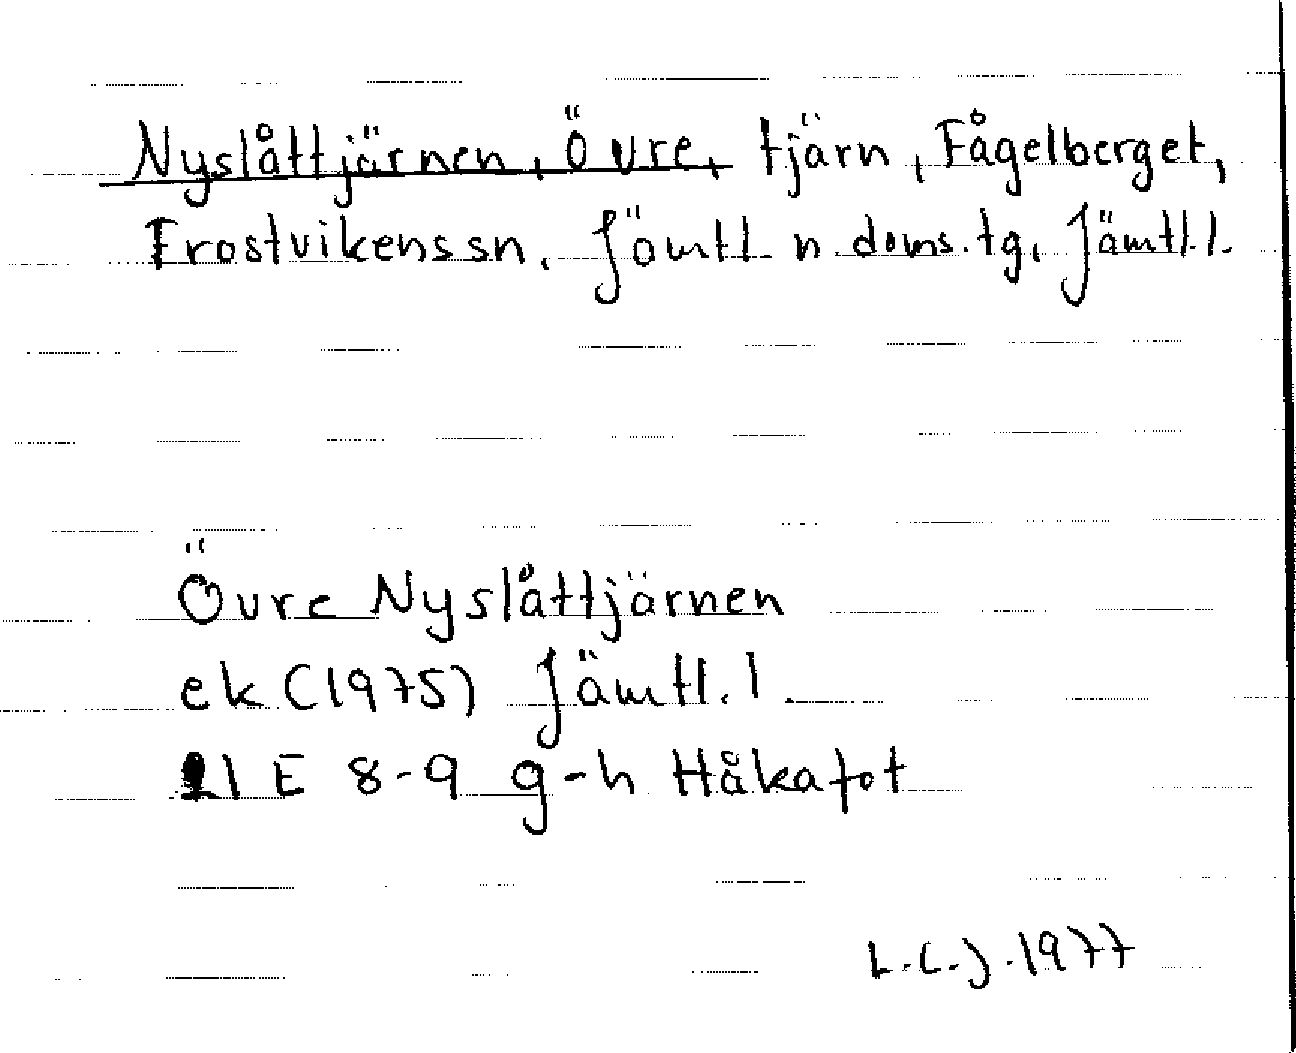 Nyslåttjärnen, Övre, tjärn, Fågelberget,
Frostvikens sn. Jämtl n doms. tg, Jämtl.l.
Övre Nyslåttjärnen
ek (1975) Jämtl.l.
21 E 8-9 g-h Håkafot
L.C.J. 1977